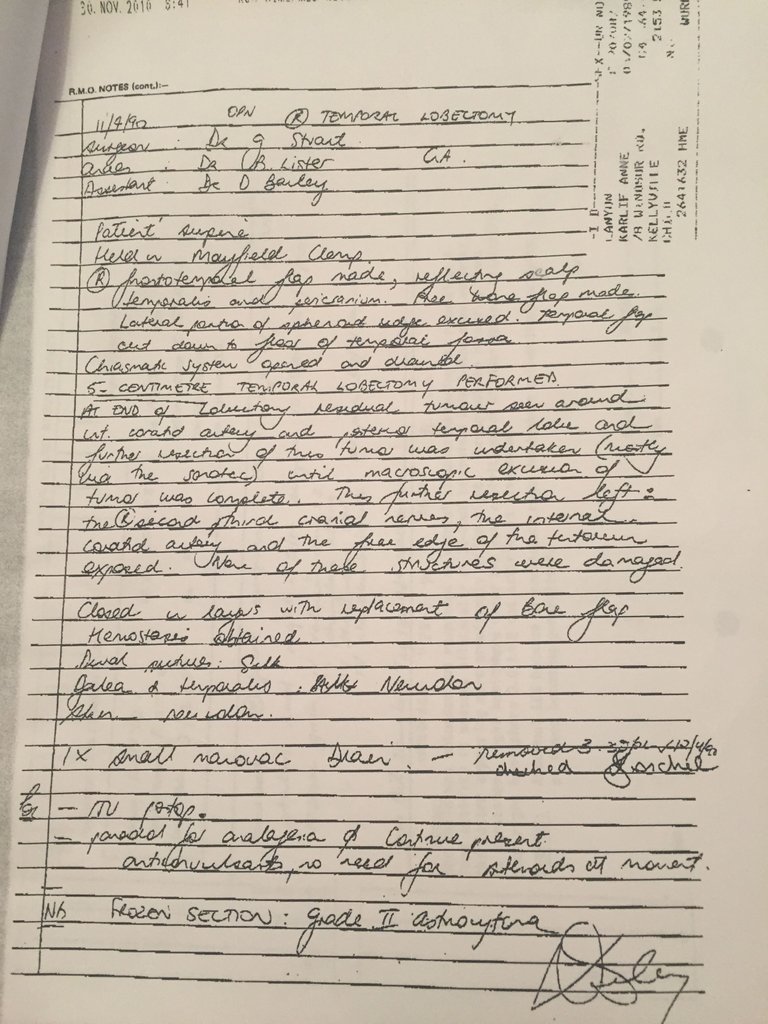 30. NOV. 2010 8:41
R.M.O. NOTES (cont.):—
LANYON
KARLIF ANNE
/8 WINDSOR RD,
KELLYVILLE
2153
2641632 HME
11/9/90 OPN Ⓡ TEMPORAL LOBECTOMY
Surgeon : Dr G Stuart
Anaes : Dr B. Lister GA.
Assistant : Dr D Bailey
Patient supine
Held in Mayfield Clamp.
Ⓡ frontotemporal flap made, reflecting scalp
temporalis and pericranium. Free bone flap made.
Lateral portion of sphenoid ridge excised. Temporal flap
cut down to floor of temporal fossa
Chiasmatic system opened and drained.
5- CENTIMETRE TEMPORAL LOBECTOMY PERFORMED.
AT END of Lobectomy residual tumour seen around
int. carotid artery and temporal lobe and
further resection of this tumor was undertaken (mostly
via the) until macroscopic excision of
tumor was complete. This further resection left :
the Ⓡ second, third cranial nerves, the internal
carotid artery and the free edge of the tentorium
exposed. None of these structures were damaged.
Closed in layers with replacement of Bone flap
Hemostasis obtained.
Dural sutures: Silk
Galea & temporalis : Neurolon
Skin neurolon.
1x small Drain. — removed
— postop.
— panadol for analgesia & Continue present
anticonvulsants, no need for steroids at moment.
NB FROZEN SECTION : Grade II astrocytoma